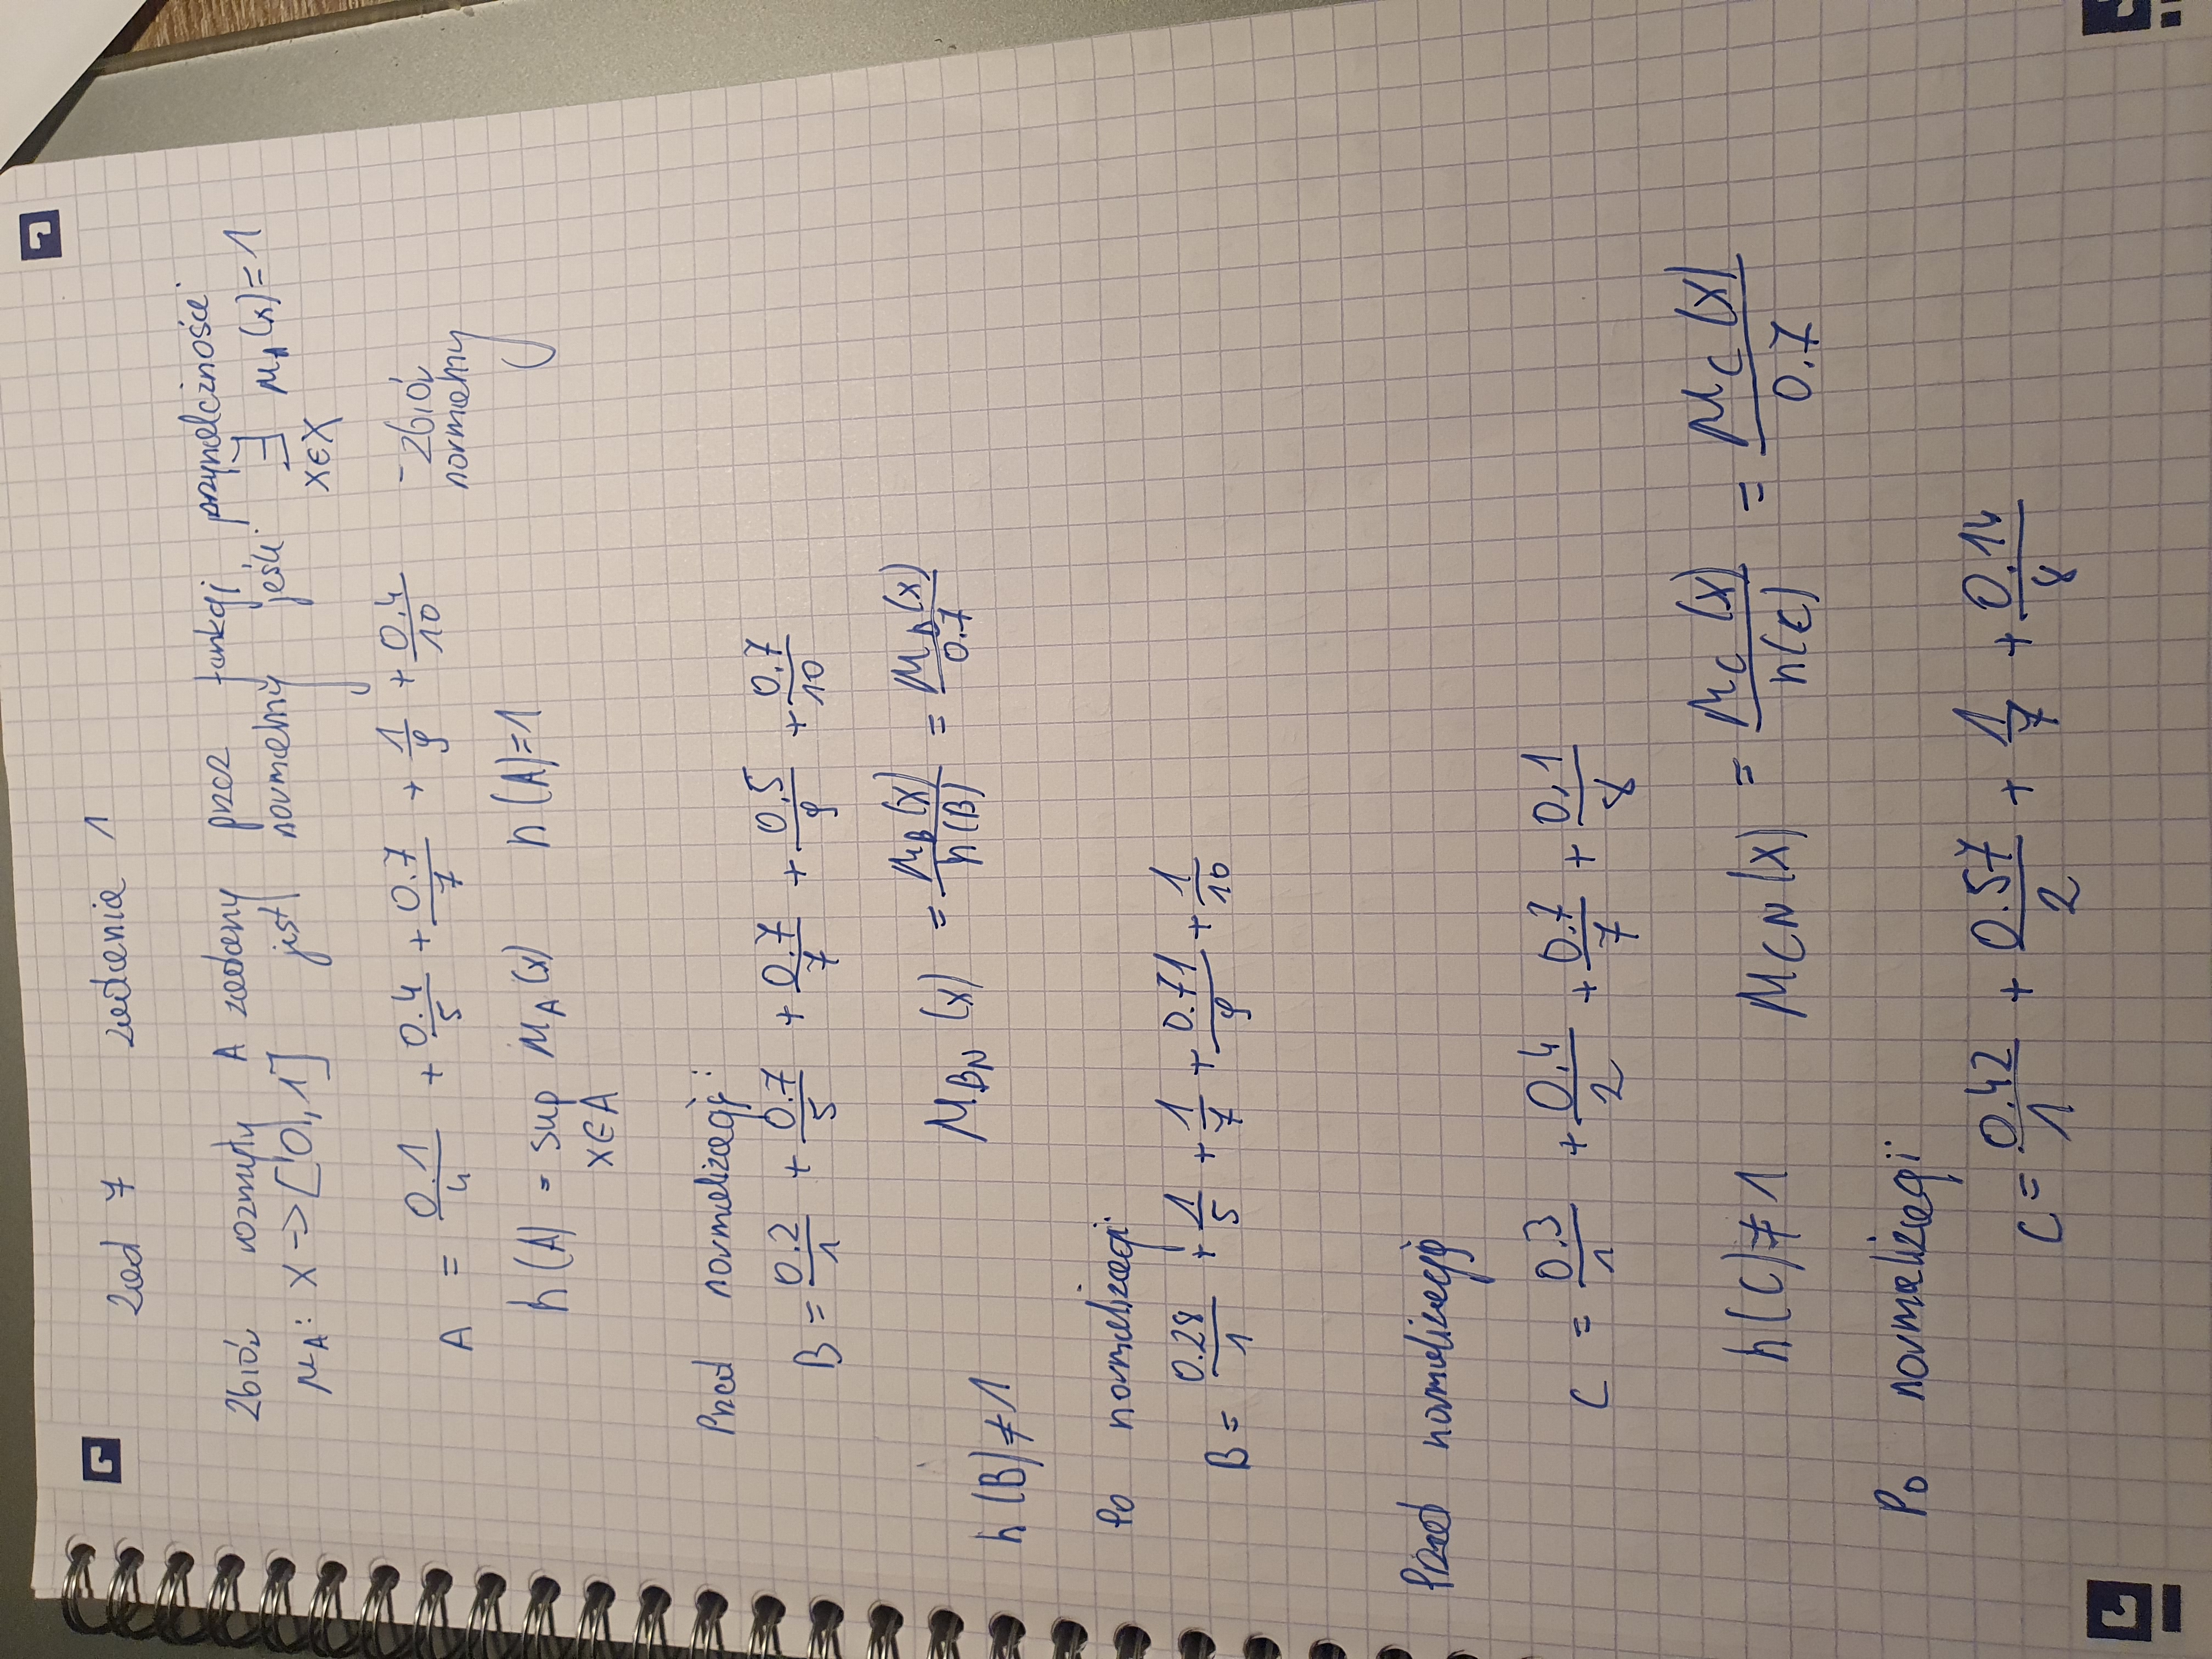 Zad 7 zadania 1
Zbiór rozmyty A zadany przez funkcję przynależności
μ_A: X -> [0,1] jest normalny jeśli ∃ x∈X μ_A(x)=1
A = 0.1/4 + 0.4/5 + 0.7/7 + 1/9 + 0.4/10 - zbiór normalny
h(A) = sup x∈A μ_A(x) h(A)=1
Przed normalizacją:
B = 0.2/1 + 0.7/5 + 0.7/7 + 0.5/9 + 0.7/10
μ_BN(x) = μ_B(x)/h(B) = μ_B(x)/0.7
h(B)≠1
Po normalizacji:
B = 0.28/1 + 1/5 + 1/7 + 0.71/9 + 1/10
Przed normalizacją
C = 0.3/1 + 0.4/2 + 0.7/7 + 0.1/8
h(C)≠1 μ_CN(x) = μ_C(x)/h(C) = μ_C(x)/0.7
Po normalizacji
C = 0.42/1 + 0.57/2 + 1/7 + 0.14/8